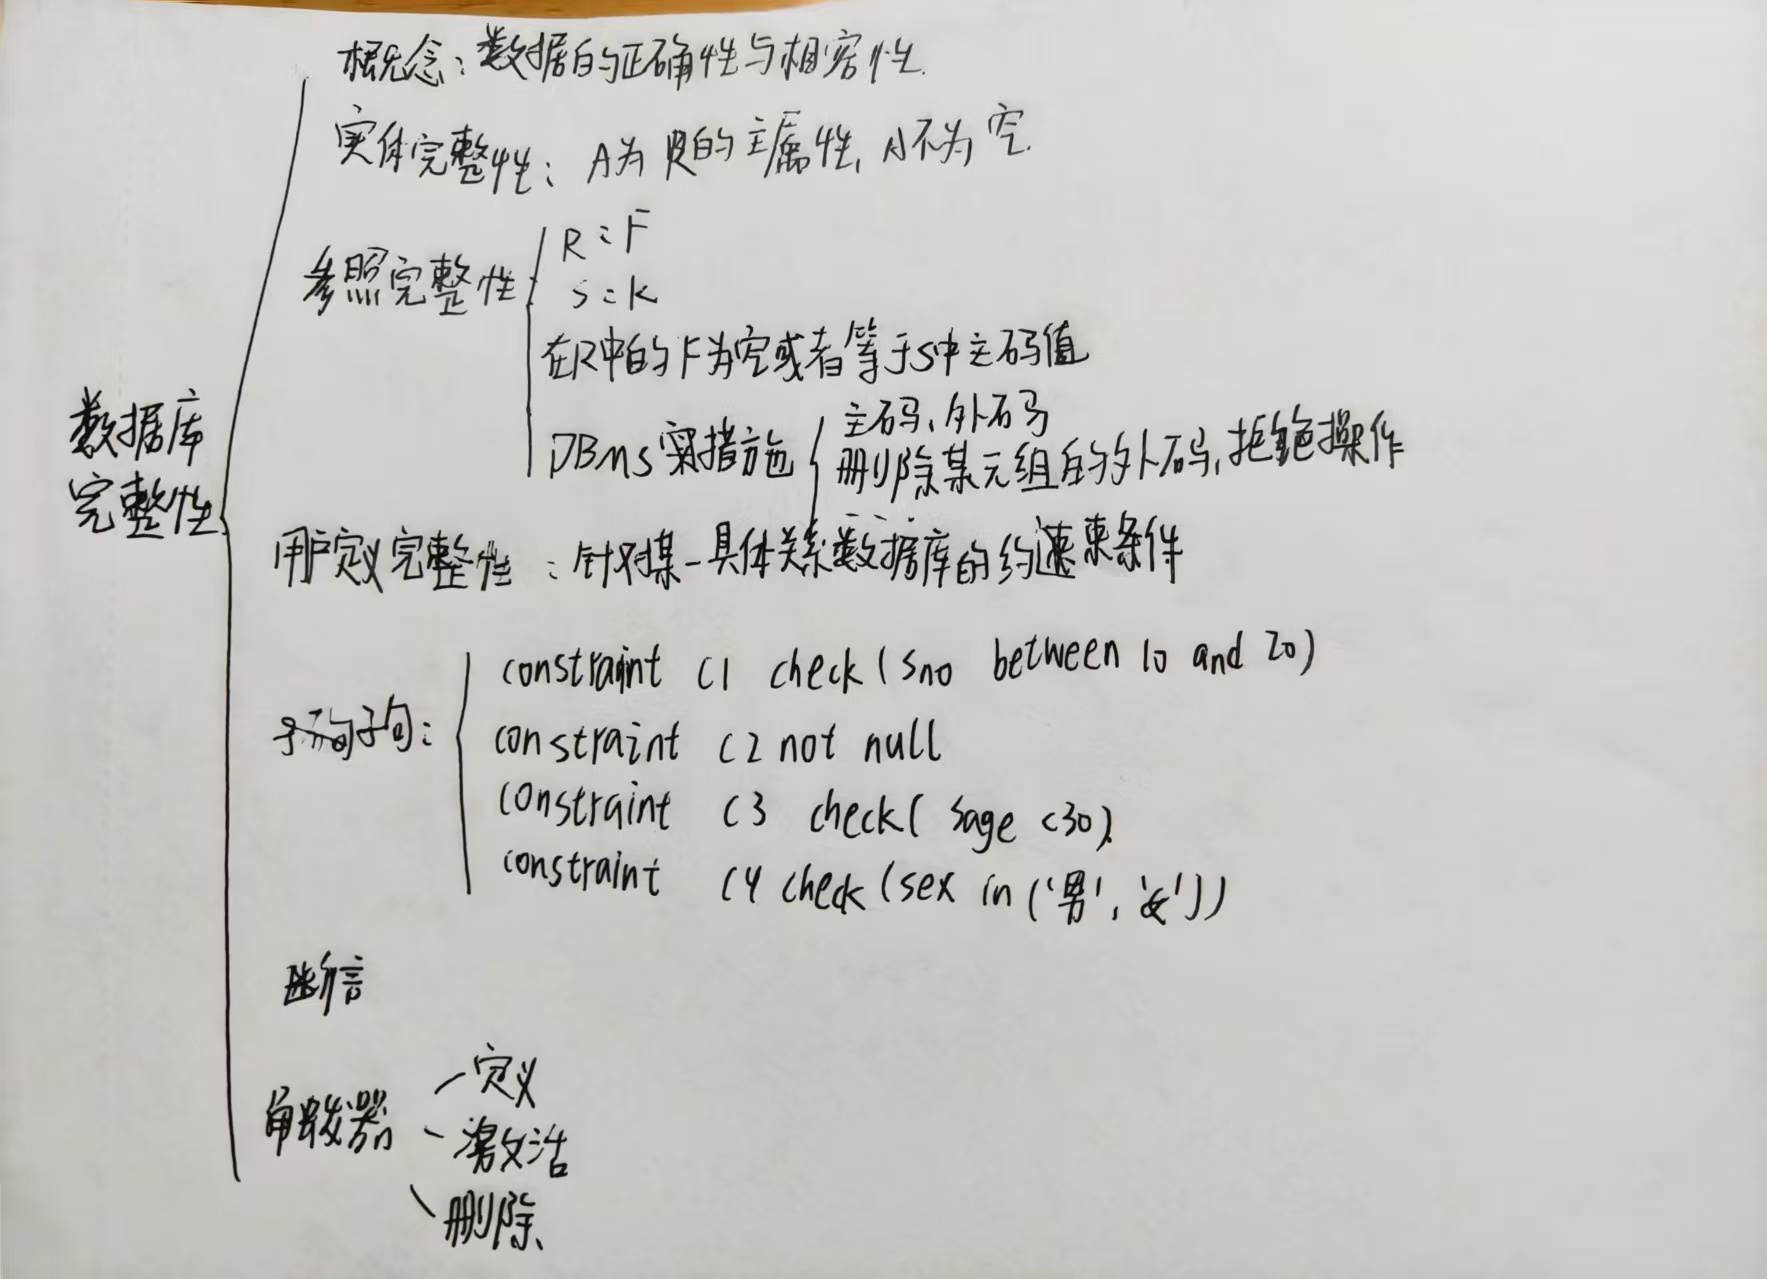 概念：数据的正确性与相容性.
实体完整性：A为R的主属性, A不为空.
参照完整性
R：F
S：K
在R中的F为空或者等于S中主码值
DBms 措施
主码、外码
删除某元组的外码,拒绝操作
数据库
完整性
用户定义完整性：针对某一具体关系数据库的约束条件
子句：
constraint C1 check(Sno between 10 and 20)
constraint C2 not null
constraint C3 check( Sage <30).
constraint C4 check (sex in ('男', '女'))
断言
触发器
定义
激活
删除